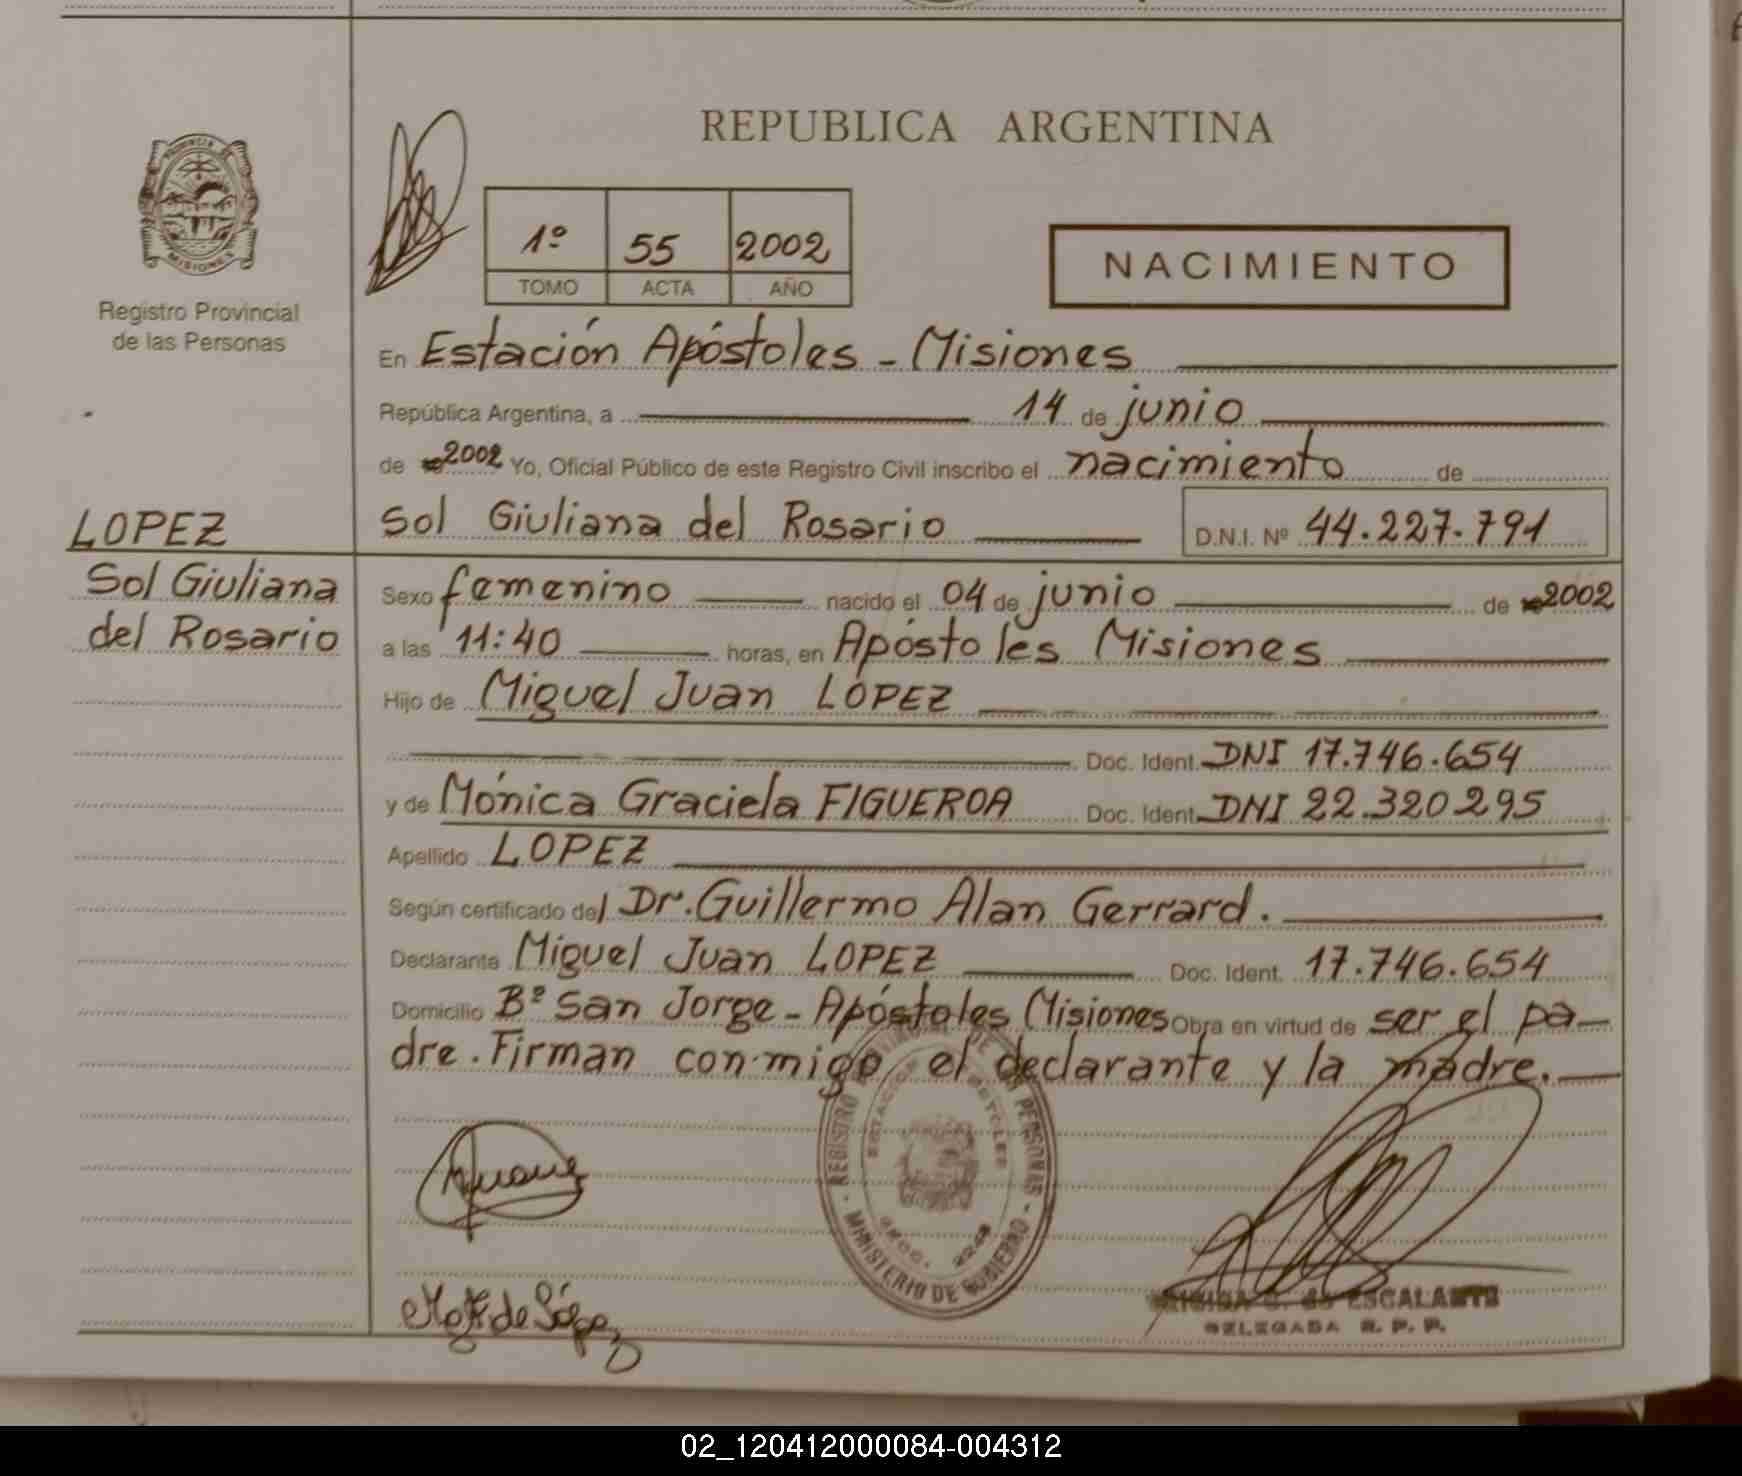 REPUBLICA ARGENTINA
PROVINCIA DE
MISIONES
Registro Provincial
de las Personas
1º 55 2002
TOMO ACTA AÑO
NACIMIENTO
En Estación Apóstoles - Misiones
República Argentina, a 14 de junio
de 2002 Yo, Oficial Público de este Registro Civil inscribo el nacimiento de
LOPEZ
Sol Giuliana del Rosario D.N.I. Nº 44.227.791
Sol Giuliana
del Rosario
Sexo femenino nacido el 04 de junio de 2002
a las 11:40 horas, en Apóstoles Misiones
Hijo de Miguel Juan LÓPEZ
Doc. Ident. DNI 17.746.654
y de Mónica Graciela FIGUEROA Doc. Ident. DNI 22.320295
Apellido LOPEZ
Según certificado del Dr. Guillermo Alan Gerrard.
Declarante Miguel Juan LOPEZ Doc. Ident. 17.746.654
Domicilio Bº San Jorge - Apóstoles Misiones Obra en virtud de ser el pa-
dre. Firman conmigo el declarante y la madre.
REGISTRO PROVINCIAL DE LAS PERSONAS
MINISTERIO DE GOBIERNO
de López
de ESCALANTE
DELEGADA R. P. P.
02_120412000084-004312